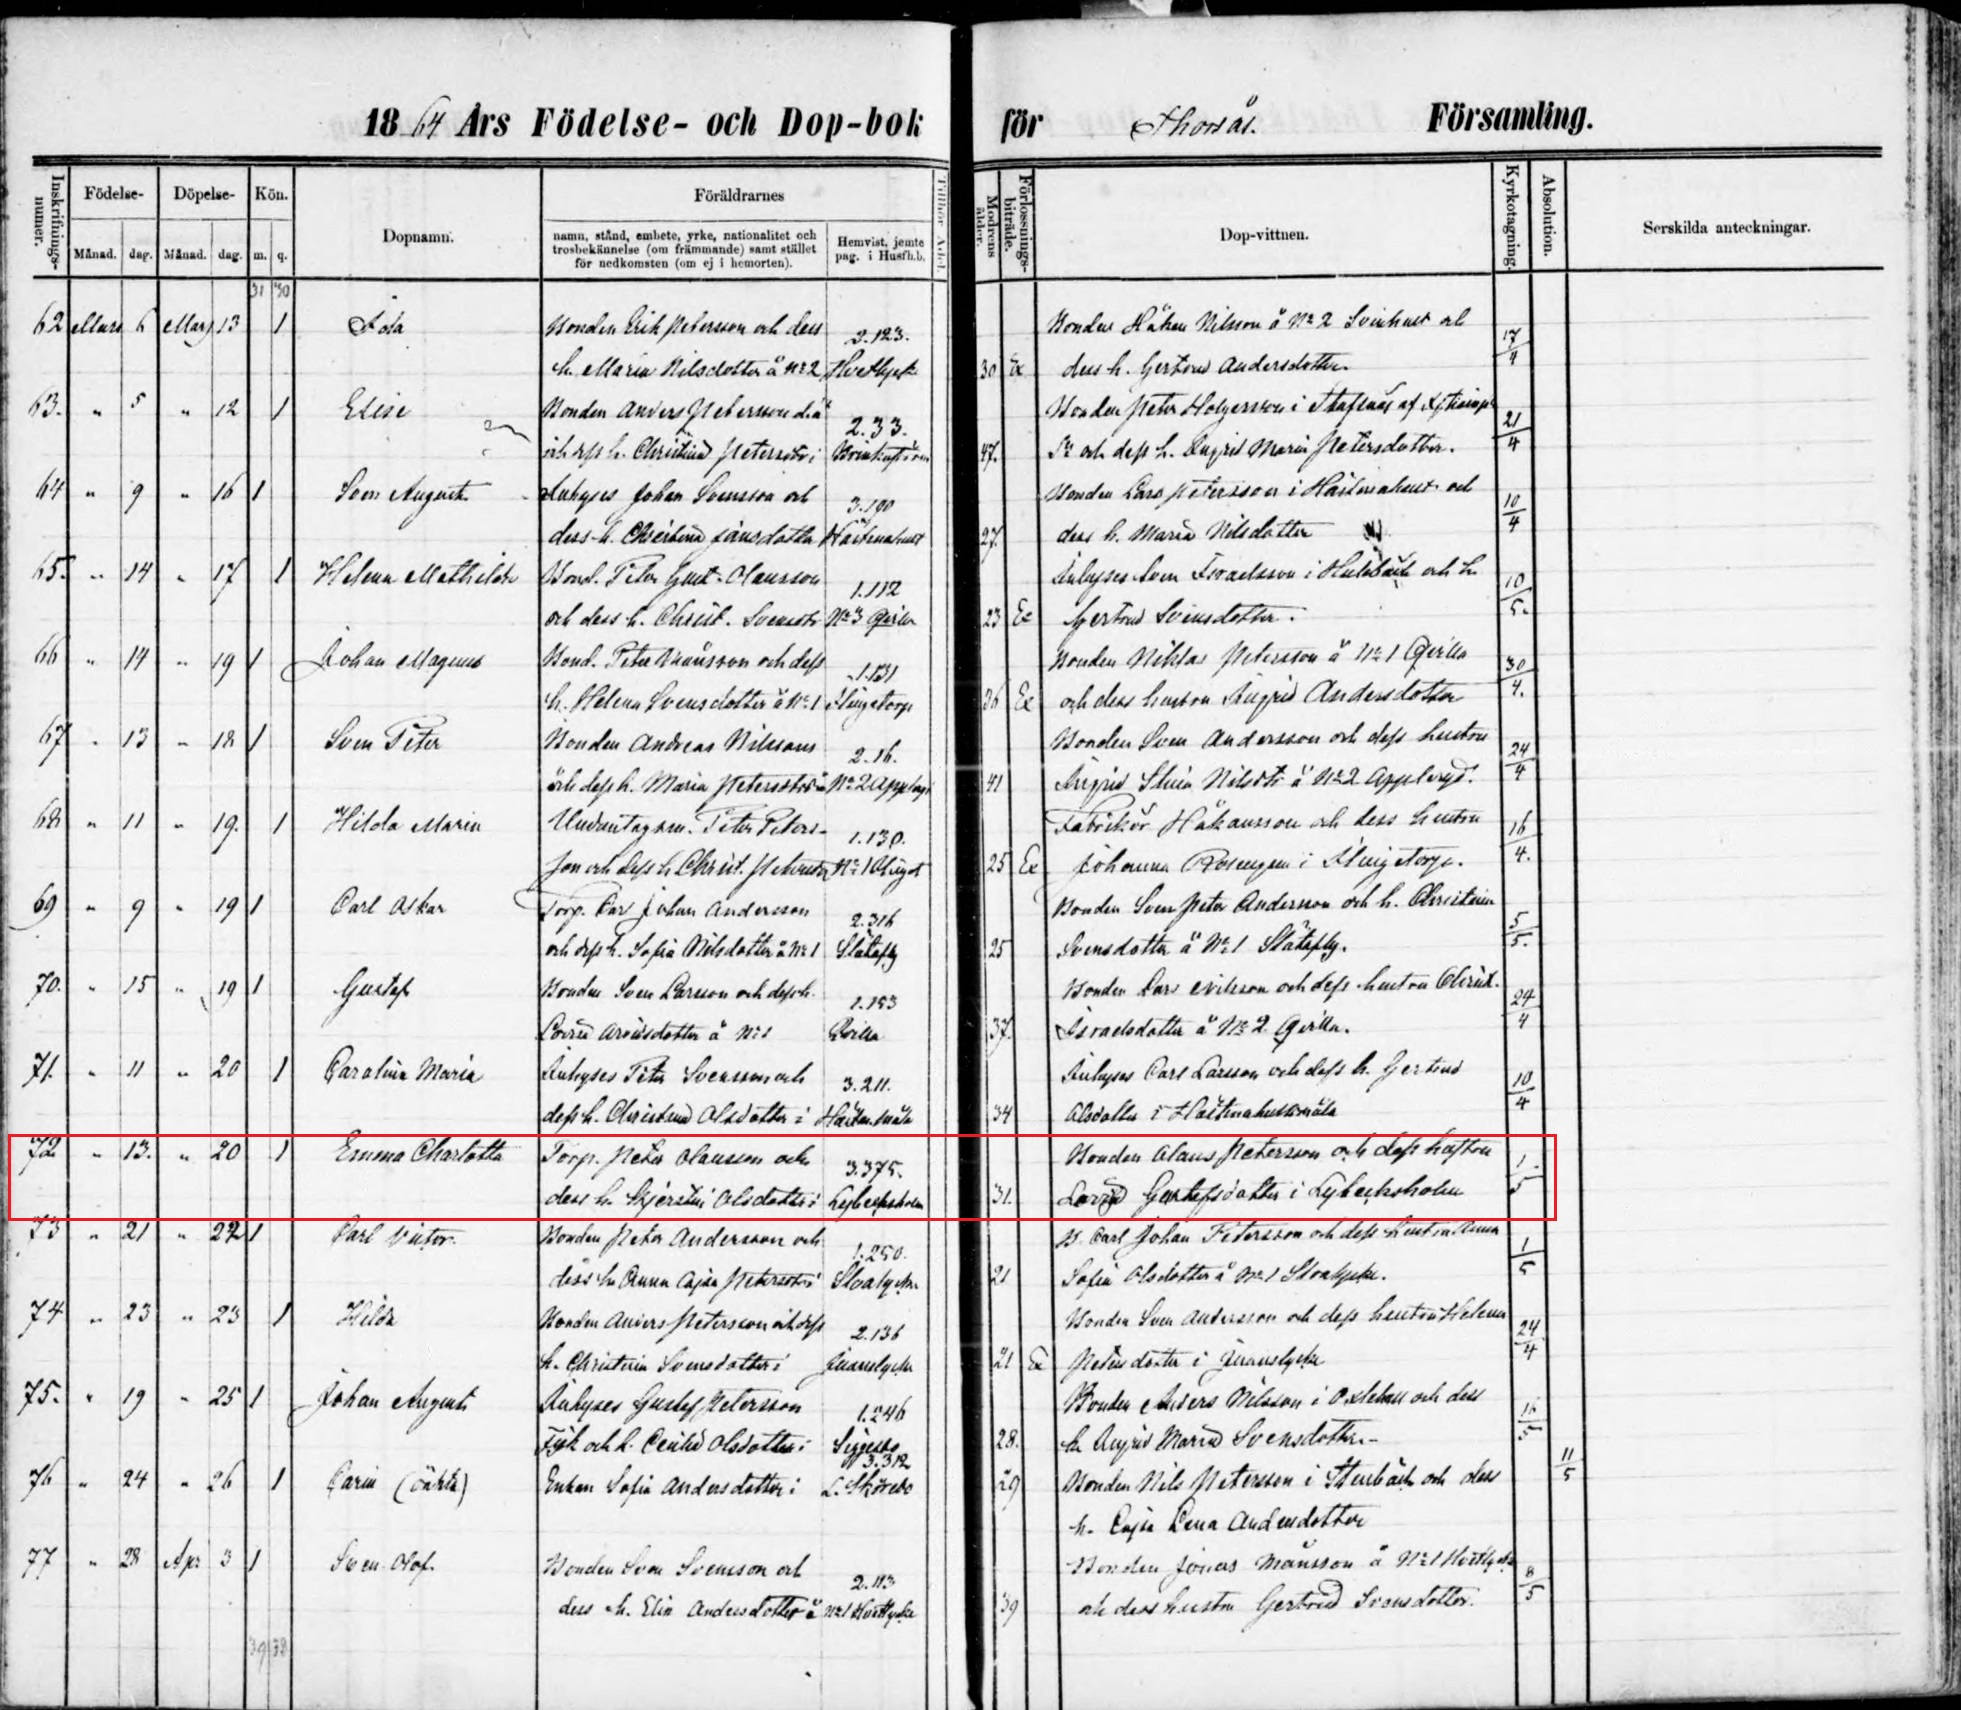 1864 Års Födelse- och Dop-bok för Thorsås Församling.
Inskrifnings-numer.
Födelse-
Döpelse-
Kön.
Månad. dag. Månad. dag. m. q.
Dopnamn.
Föräldrarnes
namn, stånd, embete, yrke, nationalitet och
trosbekännelse (om främmande) samt stället
för nedkomsten (om ej i hemorten).
Hemvist, jemte
pag. i Husfh.b.
Tillhör Adel.
Modrens ålder.
Förlossnings-biträde.
Dop-vittnen.
Kyrkotagning.
Absolution.
Serskilda anteckningar.
31 30
62 Mars 6 Mars 13 1 Ada Bonden Erik Petersson och dess 2.123. Bonden Håkan Nilsson å No 2 och 17/4
h. Maria Nilsdotter å No 2 Hvetlycke 30 Ex dess h. Gertrud Andersdotter
63. " 5 " 12 1 Elise Bonden Anders Petersson 2.33. Bonden Peter Holgersson i af 21/4
och dess h. Christina Petersdotter i 47. och dess h. Ingrid Maria Petersdotter.
64 " 9 " 16 1 Sven August Inhyses Johan Svensson och 3.190 Bonden Lars Petersson i och 10/4
dess h. Christina Jönsdotter 27. dess h. Maria Nilsdotter
65. " 14 " 17 1 Helena Mathilda Bond. Peter Gust. Olausson 1.112 Inhyses Sven Israelsson i och h. 10/5.
och dess h. Christ. Svensdtr No 3 Qvilla 23 Ex Gertrud Svensdotter.
66 " 14 " 19 1 Johan Magnus Bond. Peter Månsson och dess 1.131 Bonden Niklas Petersson å No 1 Qvilla 30/4.
h. Helena Svensdotter å No 1 Slingetorp 36 Ex och dess hustru Ingrid Andersdotter
67 " 13 " 18 1 Sven Peter Bonden Andreas Nilsson 2.16. Bonden Sven Andersson och dess hustru 24/4
och dess h. Maria Petersdotter å No 2 41 Ingrid Stina Nilsdtr å No 2
68 " 11 " 19. 1 Hilda Maria Undantagsm. Peter Peters- 1.130. Fabrikör Håkansson och dess hustru 16/4.
son och dess h. Christ. Petersdtr No 1 25 Ex Johanna i Slingetorp.
69 " 9 " 19 1 Carl Oskar Torp. Carl Johan Andersson 2.316 Bonden Sven Peter Andersson och h. Christina 5/5.
och dess h. Sofia Nilsdotter å No 1 Slätafly 25 Svensdotter å No 1 Slätafly.
70. " 15 " 19 1 Gustaf Bonden Sven Larsson och dess h. 1.153 Bonden Lars Nilsson och dess hustru Christ. 24/4
Lovisa å No 2 Qvilla 37. Israelsdotter å No 2 Qvilla.
71. " 11 " 20 1 Carolina Maria Inhyses Peter Svensson och 3.211. Inhyses Carl Larsson och dess h. Gertrud 10/4
dess h. Christina Olsdotter i 34 Olsdotter i
72 " 13. " 20 1 Emma Charlotta Torp. Peter Olausson och 3.375. Bonden Olaus Petersson och dess hustru 1/5
dess h. Kjerstin Olsdotter i Lybecksholm 31. Lovisa Gustafsdotter i Lybecksholm
73 " 21 " 22 1 Carl Victor. Bonden Peter Andersson och 1.250. B. Carl Johan Petersson och dess hustru Anna 1/5
dess h. Anna Cajsa Petersdtr i Stoalycke 21 Sofia Olsdotter å No 1 Stoalycke.
74 " 23 " 23 1 Hilda Bonden Anders Petersson och dess 2.136 Bonden Sven Andersson och dess hustru Helena 24/4
h. Christina Svensdotter i 21 Ex Petersdotter i
75. " 19 " 25 1 Johan August Inhyses Gustaf Petersson 1.246 Bonden Anders Nilsson i och dess 16/5
Fisk och h. Cecilia Olsdotter i 28. h. Ingrid Maria Svensdotter
76 " 24 " 26 1 Carin (oäkta) Enkan Sofia Andersdotter i 3.312 L. Skörebo 29 Bonden Nils Petersson i Stenbäck och dess 11/5
h. Cajsa Lena Andersdotter
77 " 28 Apr 3 1 Sven Olof. Bonden Sven Svensson och 2.113 Bonden Jonas Månsson å No 1 Hvetlycke 8/5
dess h. Elin Andersdotter å No 1 Hvetlycke 39 och dess hustru Gertrud Svensdotter.
39 38